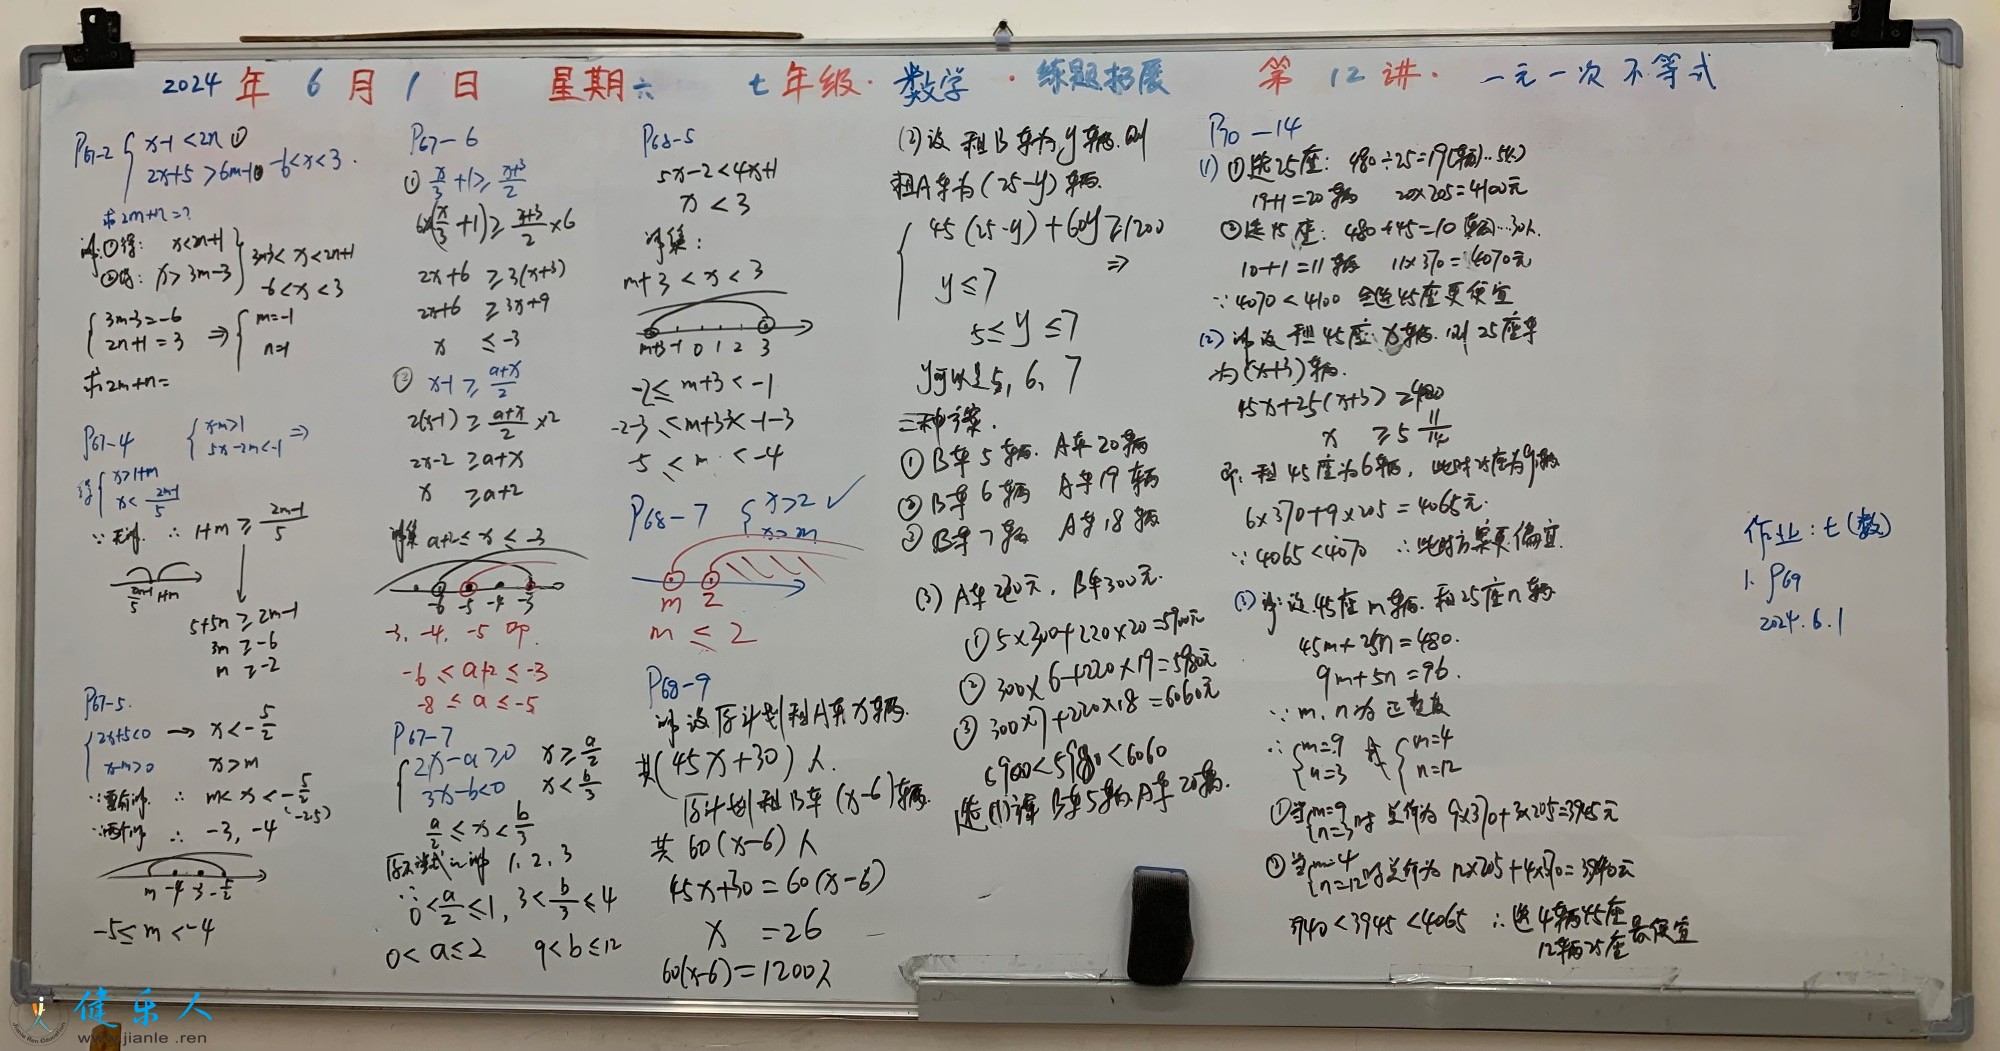 2024 年 6 月 1 日 星期六 七年级·数学·练题拓展 第 12 讲· 一元一次不等式
P67-2 { x-1<2n ①
2x+5>6m-1② -6<x<3.
求2m+n=?
解:①得: x<2n+1 } 3m-3<x<2n+1
②得: x>3m-3 -6<x<3
{ 3m-3=-6
2n+1=3 ⇒ { m=-1
n=1
求2m+n=
P67-4 { x-m>1
5x-2m<-1 ⇒
得 { x>1+m
x<(2m-1)/5
∵无解 ∴ 1+m ≥ (2m-1)/5
(2m-1)/5 1+m
5+5m ≥ 2m-1
3m ≥ -6
m ≥ -2
P67-5.
{ 2x+5<0 → x<-5/2
x-m>0 x>m
∴ m<x<-5/2
(-2.5)
∴ -3, -4
m -4 -3 -5/2
-5≤m<-4
P67-6
① x/3+1≥(x+3)/2
6×(x/3+1)≥(x+3)/2×6
2x+6 ≥3(x+3)
2x+6 ≥3x+9
x ≤-3
② x-1≥(a+x)/2
2(x-1)≥(a+x)/2×2
2x-2 ≥a+x
x ≥a+2
解集 a+2≤x≤-3
-6 -5 -4 -3
-3, -4, -5 即
-6<a+2≤-5
-8<a≤-5
P67-7
{ 2x-a≥0 x≥a/2
3x-b<0 x<b/3
a/2≤x<b/3
原不等式的解 1, 2, 3
∴ 0<a/2≤1, 3<b/3≤4
0<a≤2 9<b≤12
P68-5
5x-2<4x+1
x<3
解集:
m+3<x<3
m+3 -1 0 1 2 3
-2≤m+3<-1
-2-3≤m+3-3<-1-3
-5≤m<-4
P68-7 { x>2 ✓
x>m
m 2
m≤2
P68-9
解设原计划租A车x辆.
共(45x+30)人.
原计划租B车(x-6)辆.
共60(x-6)人
45x+30=60(x-6)
x =26
60(x-6)=1200人
(2)设租B车为y辆.则
租A车为(25-y)辆.
{ 45(25-y)+60y≥1200
y≤7 ⇒
5≤y≤7
y可以是5, 6, 7
三种方案.
① B车5辆. A车20辆
② B车6辆 A车19辆
③ B车7辆 A车18辆
(3) A车220元, B车300元.
① 5×300+220×20=5900元
② 300×6+220×19=5980元
③ 300×7+220×18=6060元
5900<5980<6060
选(1)方案 B车5辆.A车20辆.
P70-14
(1) ①选25座: 480÷25=19(辆)…5(人)
19+1=20辆 20×205=4100元
②选45座: 480÷45=10辆…30人.
10+1=11辆 11×370=4070元
∵4070<4100 全选45座更便宜
(2) 解设租45座x辆.则25座车
为(x+3)辆.
45x+25(x+3)≥480
x ≥5 11/14
即:租45座为6辆, 此时25座为9辆
6×370+9×205=4065元.
∵4065<4070 ∴此时方案更偏宜.
(3) 解:设45座m辆.和25座n辆
45m+25n=480.
9m+5n=96.
∵m, n为正整数
∴ { m=9
n=3 或 { m=4
n=12
①当{ m=9
n=3时 总价为 9×370+3×205=3945元
②当{ m=4
n=12时总价为 12×205+4×370=3940元
3940<3945<4065 ∴选4辆45座
12辆25座最便宜
作业:七(数)
1. P69
2024.6.1
健乐人
www.jianle.ren